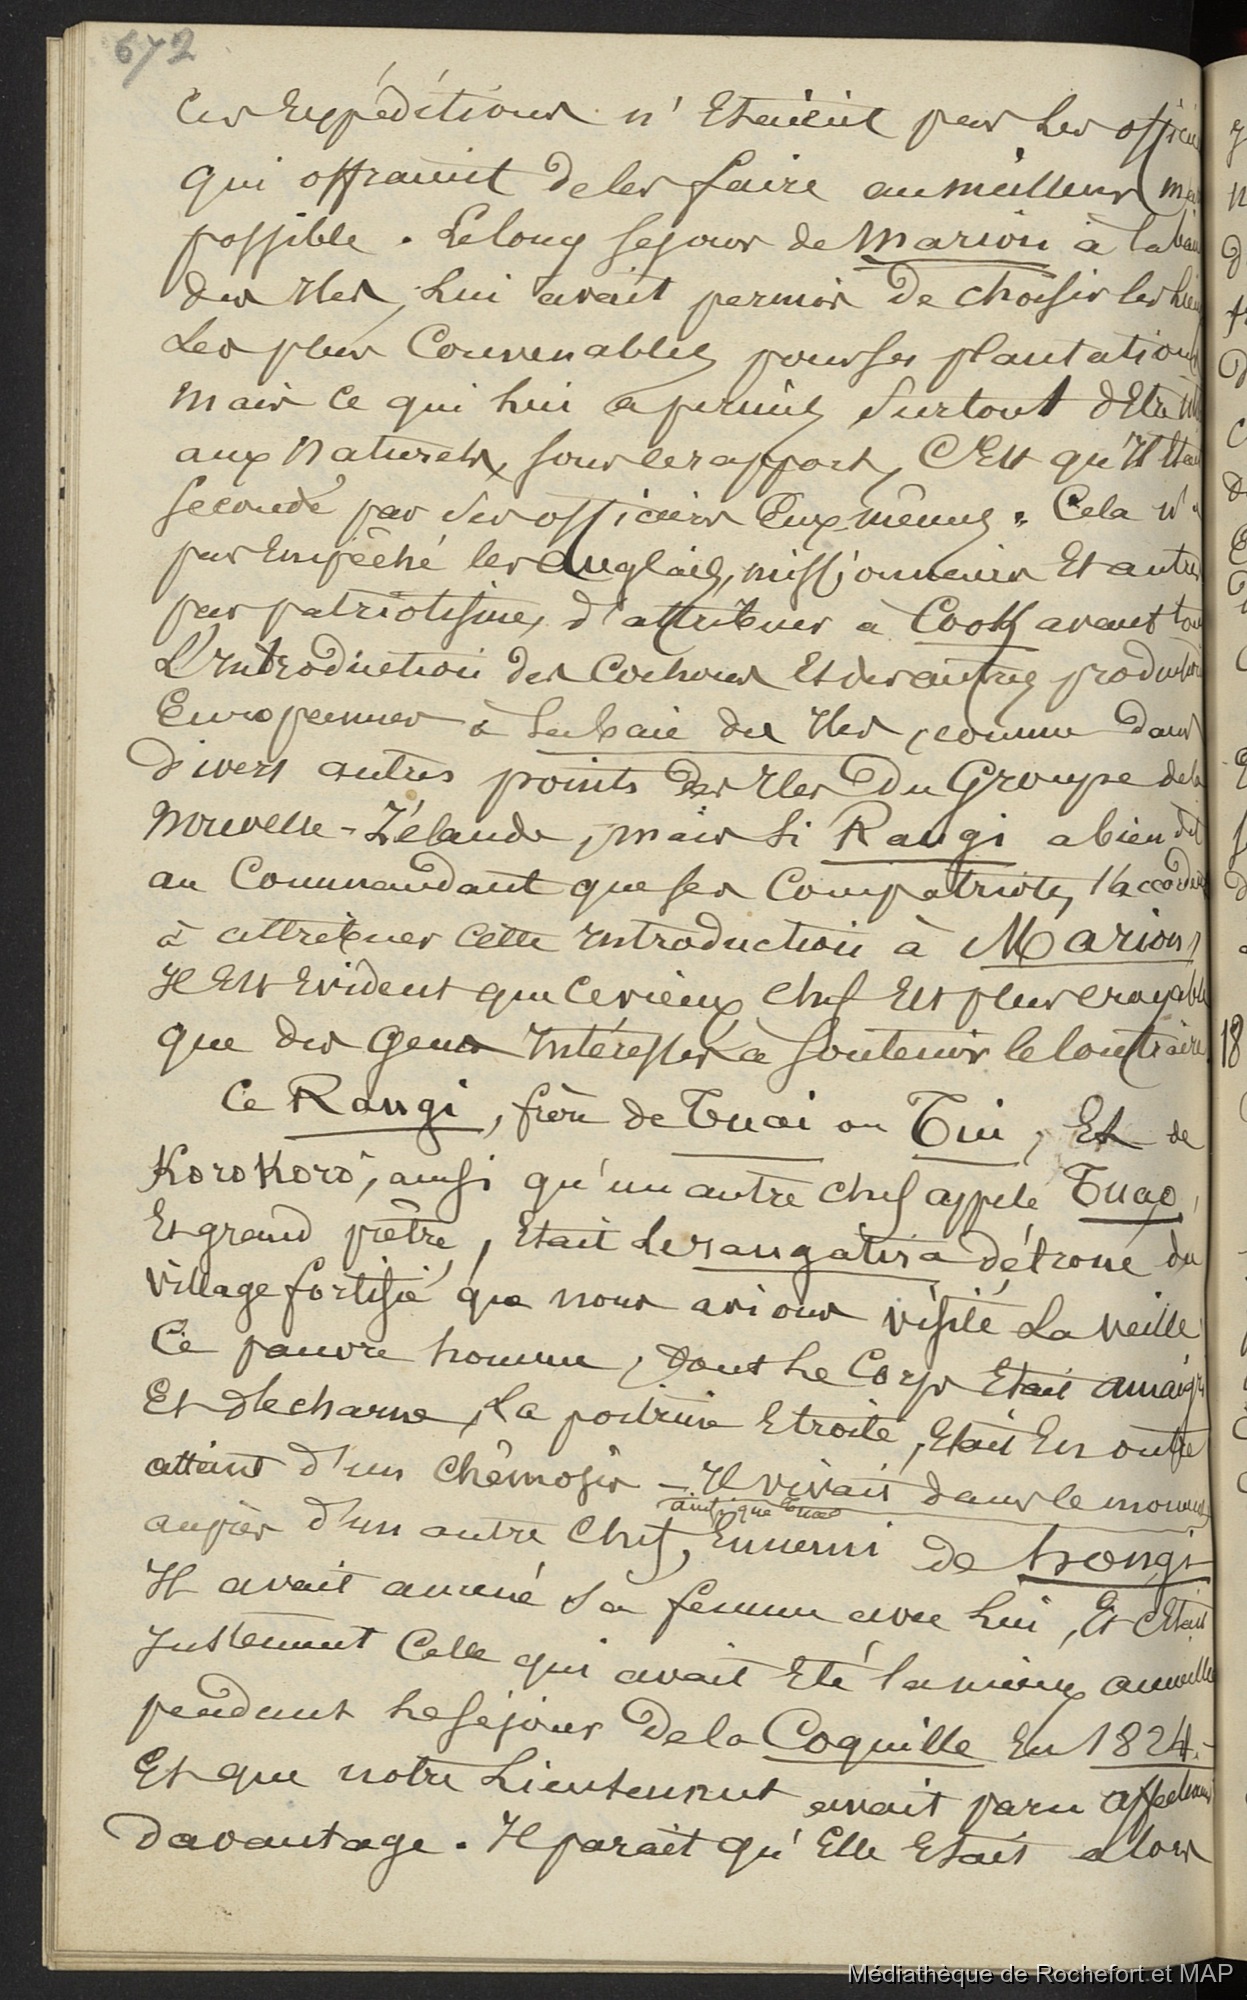 672
Ces Expéditions n'Etaient pas les officiers
qui offraient de les faire au meilleur
possible. Le long sejour de Marion à la baie
des Iles, lui avait permis de choisir les lieux
les plus Convenables pour ses plantations
Mais ce qui lui a permis surtout d'Etre utile
aux Naturels, sous ce rapport, C'Est qu'Il Etait
Secondé par des officiers Eux-mêmes. Cela n'a
pas Empêché les Anglais, missionnaires Et autres
par patriotisme, d'attribuer à Cook avant tout
L'Introduction des Cochons Et des autres productions
Européennes à la baie des Iles, comme dans
Divers autres points des Iles du Groupe de la
Nouvelle-Zélande, mais si Rangi a bien dit
au Commandant que ses Compatriotes s'accordaient
à attribuer cette Introduction à Marion,
Il Est Evident que ce vieux Chef Est plus croyable
que des Gens Intéressés à soutenir le Contraire.
Ce Rangi, frère de Tuai ou Tui, Et de
KoroKoro, ainsi qu'un autre chef appelé Tuao,
Et grand prêtre, Etait le rangatira détroné du
Village fortifié que nous avions visité la veille
Ce pauvre homme, dont le Corps Etait amaigri
Et décharné, la poitrine Etroite, Etait En outre
atteint d'un Chémosis - Il vivait dans le moment
ainsi que Tuao
auprès d'un autre Chef, Ennemi de hongi
Il avait amené sa femme avec lui, Et c'Etait
Justement Celle qui avait Eté la mieux accueillie
pendant le séjour de la Coquille En 1824.-
Et que notre Lieutenant avait paru affectionner
Davantage. Il parait qu'Elle Etait alors
18
Médiathèque de Rochefort et MAP